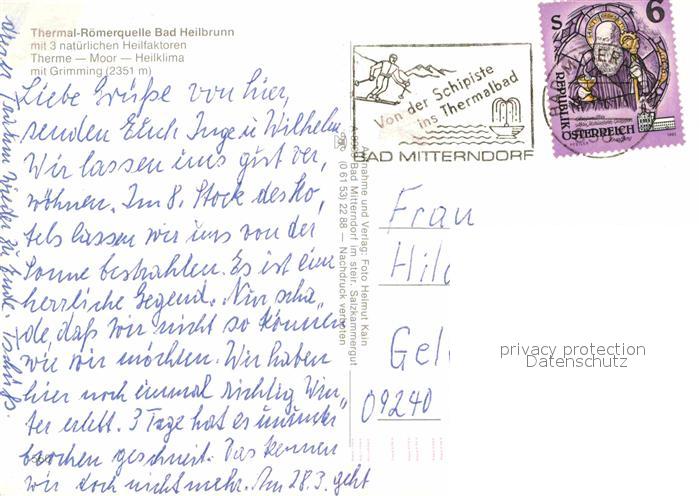 Thermal-Römerquelle Bad Heilbrunn
mit 3 natürlichen Heilfaktoren
Therme — Moor — Heilklima
mit Grimming (2351 m)
Liebe Grüße von hier,
senden Euch Inge u. Wilhelm
Wir lassen uns gut ver,
wöhnen. Im 8. Stock des Ho,
tels lassen wir uns von der
Sonne bestrahlen. Es ist eine
herrliche Gegend. Nur scha,
de, daß wir nicht so können
wie wir möchten. Wir haben
hier noch einmal richtig Win,
ter erlebt. 3 Tage hat es ununter
brochen geschneit. Das kennen
wir doch nicht mehr. Am 28.3. geht
wieder zu Ende. Tschüß.
Aufnahme und Verlag: Foto Helmut Kain
Bad Mitterndorf im steir. Salzkammergut
(0 61 53) 22 88 — Nachdruck verboten
Von der Schipiste
ins Thermalbad
BAD MITTERNDORF
S 6
REPUBLIK
ÖSTERREICH
Frau
Hil
Gel
09240
privacy protection
Datenschutz